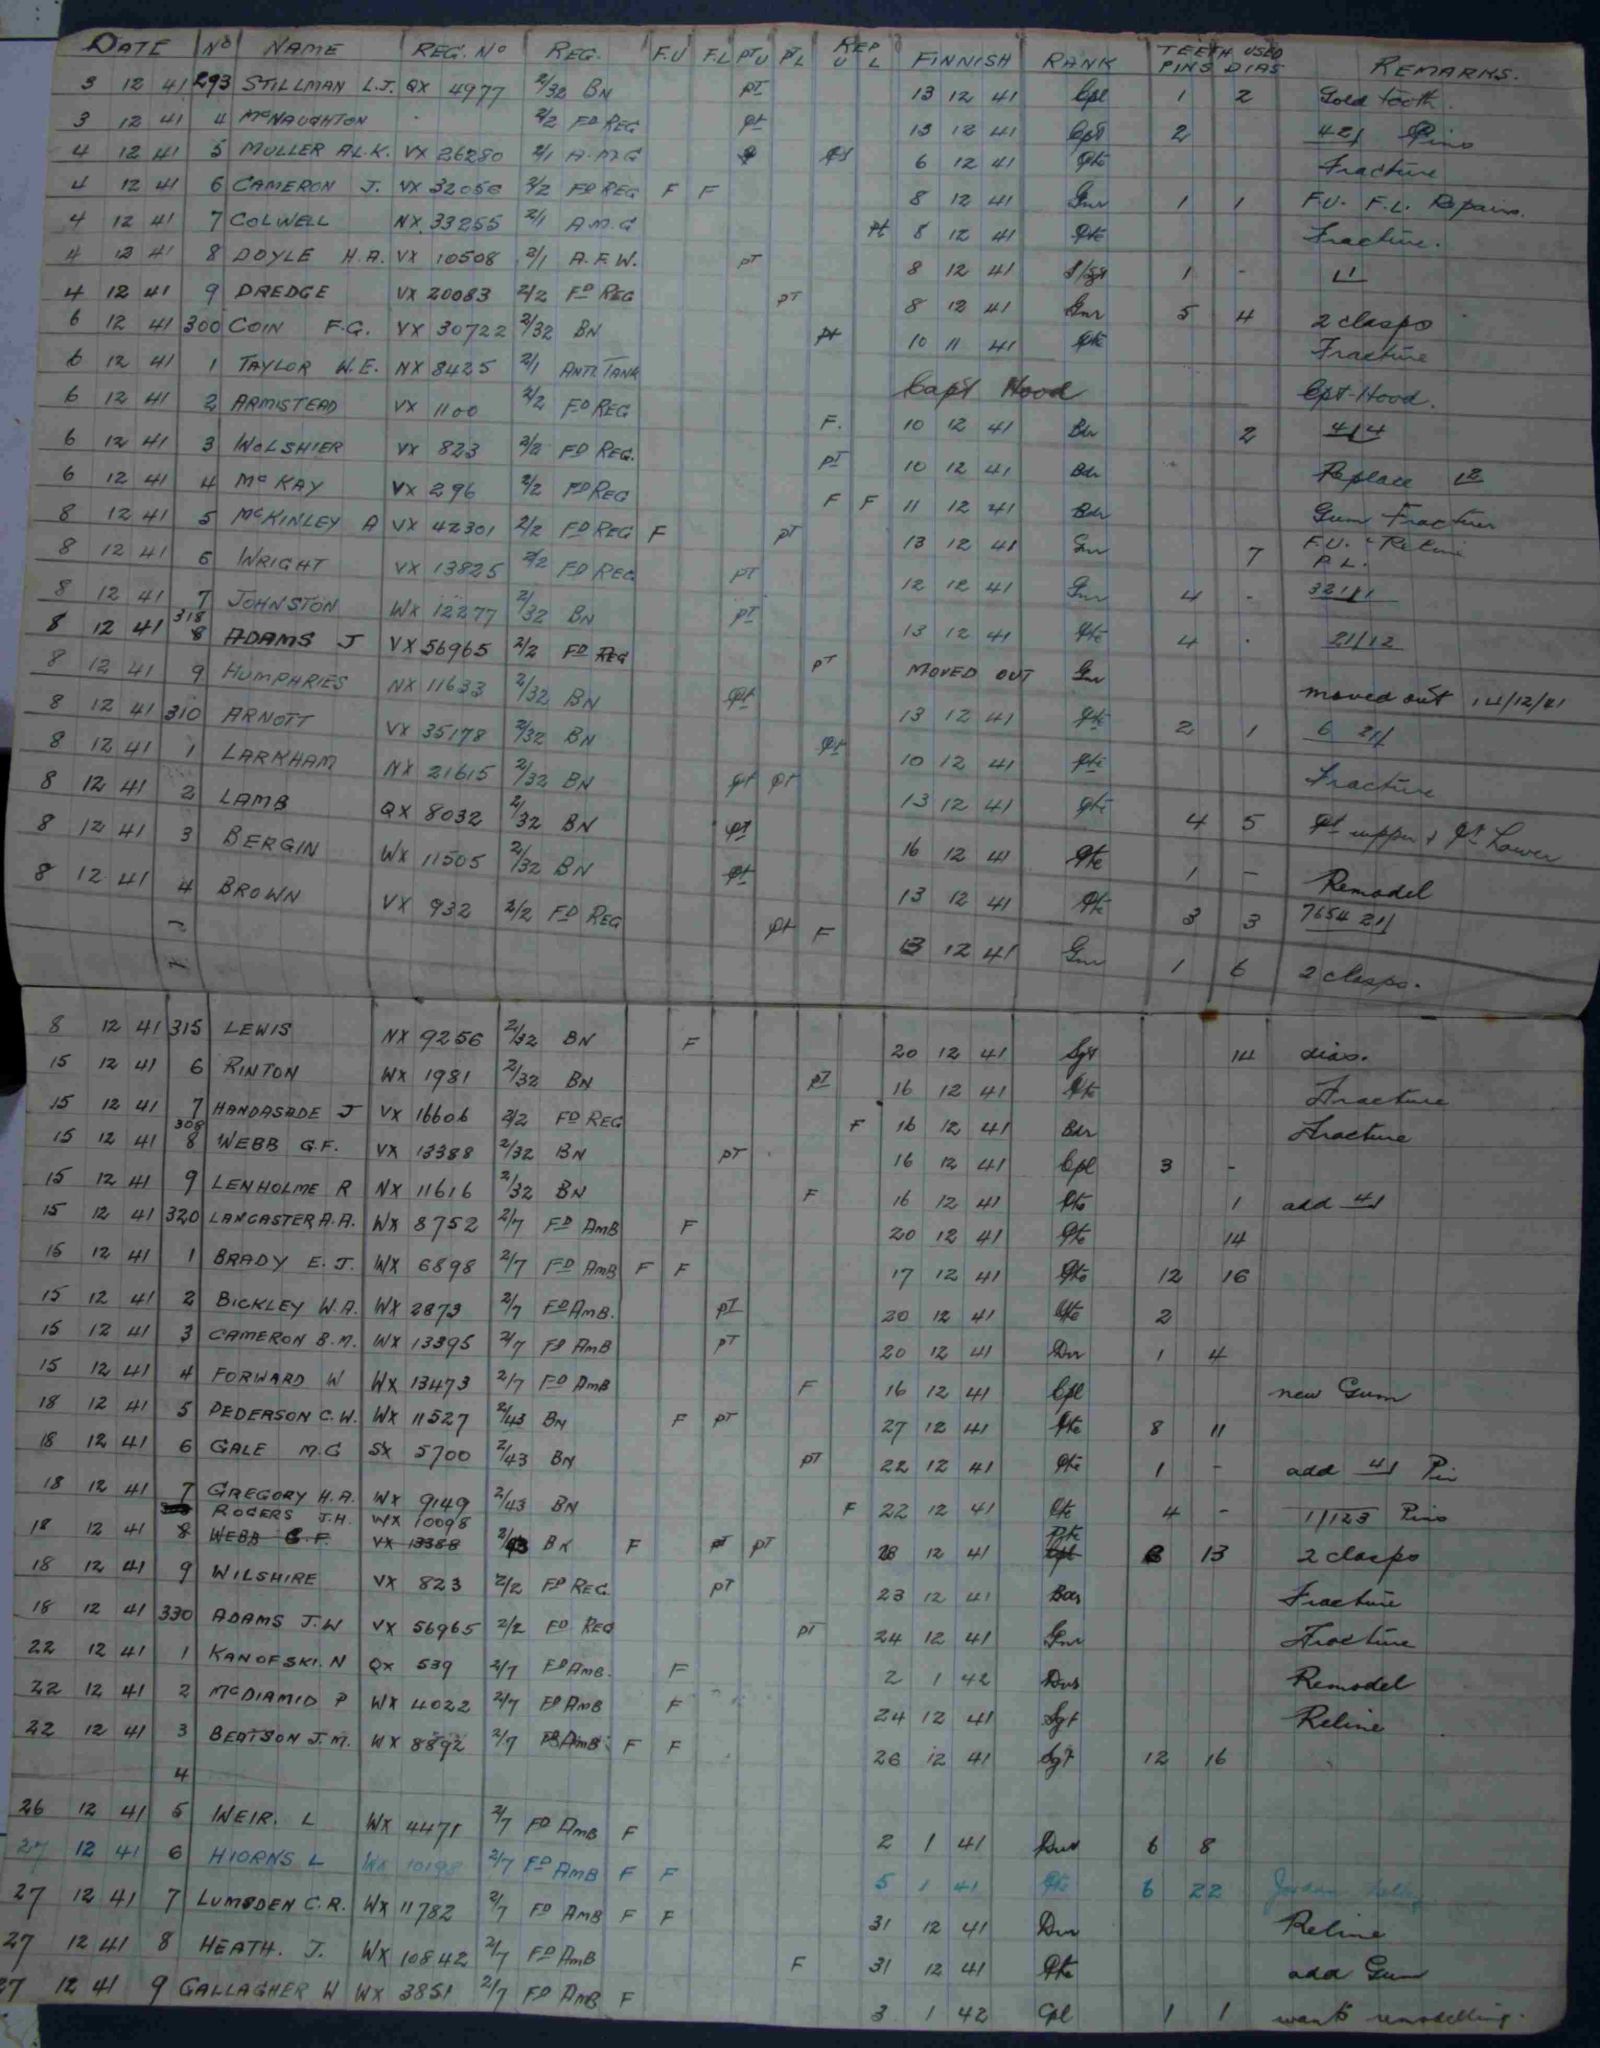 DATE No NAME REG. No REG. F.U F.L PT U PT L REP U L FINNISH RANK TEETH USED PINS DIAS REMARKS.
3 12 41 293 STILLMAN L.J. QX 4977 2/32 BN PT 13 12 41 Cpl 1 2 Gold tooth.
3 12 41 4 McNAUGHTON 2/2 FD REG pt 13 12 41 Cpt 2 421 Pins
4 12 41 5 MULLER A.L.K. VX 26280 2/1 A.M.G pt 6 12 41 Pte Fracture
4 12 41 6 CAMERON J. VX 32056 2/2 FD REG F F 8 12 41 Gnr 1 1 F.U. F.L. Repairs.
4 12 41 7 COLWELL NX 33255 2/1 A.M.G pt 8 12 41 Pte Fracture.
4 12 41 8 DOYLE H.A. VX 10508 2/1 A.F.W. PT 8 12 41 S/Sgt 1 -
4 12 41 9 DREDGE VX 20083 2/2 FD REG PT 8 12 41 Gnr 5 4 2 clasps
6 12 41 300 COIN F.G. VX 30722 2/32 BN pt 10 11 41 Pte Fracture
6 12 41 1 TAYLOR W.E. NX 8425 2/1 ANTI TANK Capt Hood Cpt Hood.
6 12 41 2 ARMISTEAD VX 1100 2/2 FD REG F. 10 12 41 Bdr 2 4/4
6 12 41 3 WOLSHIER VX 823 2/2 FD REG. PT 10 12 41 Bdr Replace 12
6 12 41 4 McKAY VX 296 2/2 FD REG F F 11 12 41 Bdr Gum Fracture
8 12 41 5 McKINLEY A VX 42301 2/2 FD REG F PT 13 12 41 Gnr 7 F.U. Reline P.L.
8 12 41 6 WRIGHT VX 13825 2/2 FD REG PT 12 12 41 Gnr 4 - 321/1
8 12 41 7 JOHNSTON WX 12277 2/32 BN PT 13 12 41 Pte 4 . 21/12
8 12 41 318 8 ADAMS J VX 56965 2/2 FD REG PT MOVED OUT Gnr moved out 14/12/41
8 12 41 9 HUMPHRIES NX 11633 2/32 BN pt 13 12 41 Pte 2 1 6 21/
8 12 41 310 ARNOTT VX 35178 2/32 BN pt 10 12 41 Pte Fracture
8 12 41 1 LARKHAM NX 21615 2/32 BN pt pt 13 12 41 Pte 4 5 Pt upper + Pt Lower
8 12 41 2 LAMB QX 8032 2/32 BN pt 16 12 41 Pte 1 - Remodel
8 12 41 3 BERGIN WX 11505 2/32 BN pt 13 12 41 Pte 3 3 7654 21/
8 12 41 4 BROWN VX 932 2/2 FD REG pt F 13 12 41 Gnr 1 6 2 clasps.
8 12 41 315 LEWIS NX 9256 2/32 BN F 20 12 41 Sgt 14 dias.
15 12 41 6 RINTON WX 1981 2/32 BN PT 16 12 41 Pte Fracture
15 12 41 7 HANDASADE J VX 16606 2/2 FD REG F 16 12 41 Bdr Fracture
15 12 41 308 8 WEBB G.F. VX 13388 2/32 BN PT 16 12 41 Cpl 3 -
15 12 41 9 LENHOLME R NX 11616 2/32 BN F 16 12 41 Pte 1 add 4/
15 12 41 320 LANCASTER A.A. WX 8752 2/7 FD AMB F 20 12 41 Pte 14
15 12 41 1 BRADY E.J. WX 6898 2/7 FD AMB F F 17 12 41 Pte 12 16
15 12 41 2 BICKLEY W.A. WX 2873 2/7 FD AMB. PT 20 12 41 Pte 2
15 12 41 3 CAMERON B.M. WX 13395 2/7 FD AMB PT 20 12 41 Dvr 1 4
15 12 41 4 FORWARD W WX 13473 2/7 FD AMB F 16 12 41 Cpl new Gum
18 12 41 5 PEDERSON C.W. WX 11527 2/43 BN F PT 27 12 41 Pte 8 11
18 12 41 6 GALE M.G SX 5700 2/43 BN PT 22 12 41 Pte 1 - add 4/ Pin
18 12 41 7 GREGORY H.A. WX 9149 2/43 BN F 22 12 41 Pte 4 - 1/123 Pins
ROGERS J.H. WX 10098 Pte
18 12 41 8 WEBB G.F. VX 13388 2/43 BN F PT PT 28 12 41 Cpl 13 2 clasps
18 12 41 9 WILSHIRE VX 823 2/2 FD REG. PT 23 12 41 Bdr Fracture
18 12 41 330 ADAMS J.W VX 56965 2/2 FD REG PT 24 12 41 Gnr Fracture
22 12 41 1 KANOFSKI. N QX 539 2/7 FD AMB. F 2 1 42 Dvr Remodel
22 12 41 2 McDIAMID P WX 4022 2/7 FD AMB F 24 12 41 Sgt Reline
22 12 41 3 BEATSON J.M. WX 8892 2/7 FD AMB. F F 26 12 41 Sgt 12 16
4
26 12 41 5 WEIR. L WX 4471 2/7 FD AMB F 2 1 41 Dvr 6 8
27 12 41 6 HIORNS L WX 10198 2/7 FD AMB F F 5 1 41 Pte 6 22
27 12 41 7 LUMSDEN C.R. WX 11782 2/7 FD AMB F F 31 12 41 Dvr Reline
27 12 41 8 HEATH. J. WX 10842 2/7 FD AMB F 31 12 41 Pte add Gum
27 12 41 9 GALLAGHER W WX 3851 2/7 FD AMB F 3 1 42 Cpl 1 1 wants remodelling.